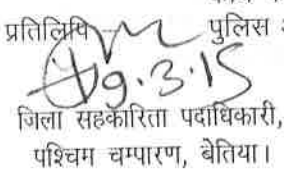 प्रतिलिपि पुलिस
19.3.15
जिला सहकारिता पदाधिकारी,
पश्चिम चम्पारण, बेतिया।